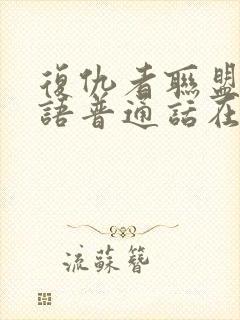 復仇者聯盟
語普通話在
流蘇簪